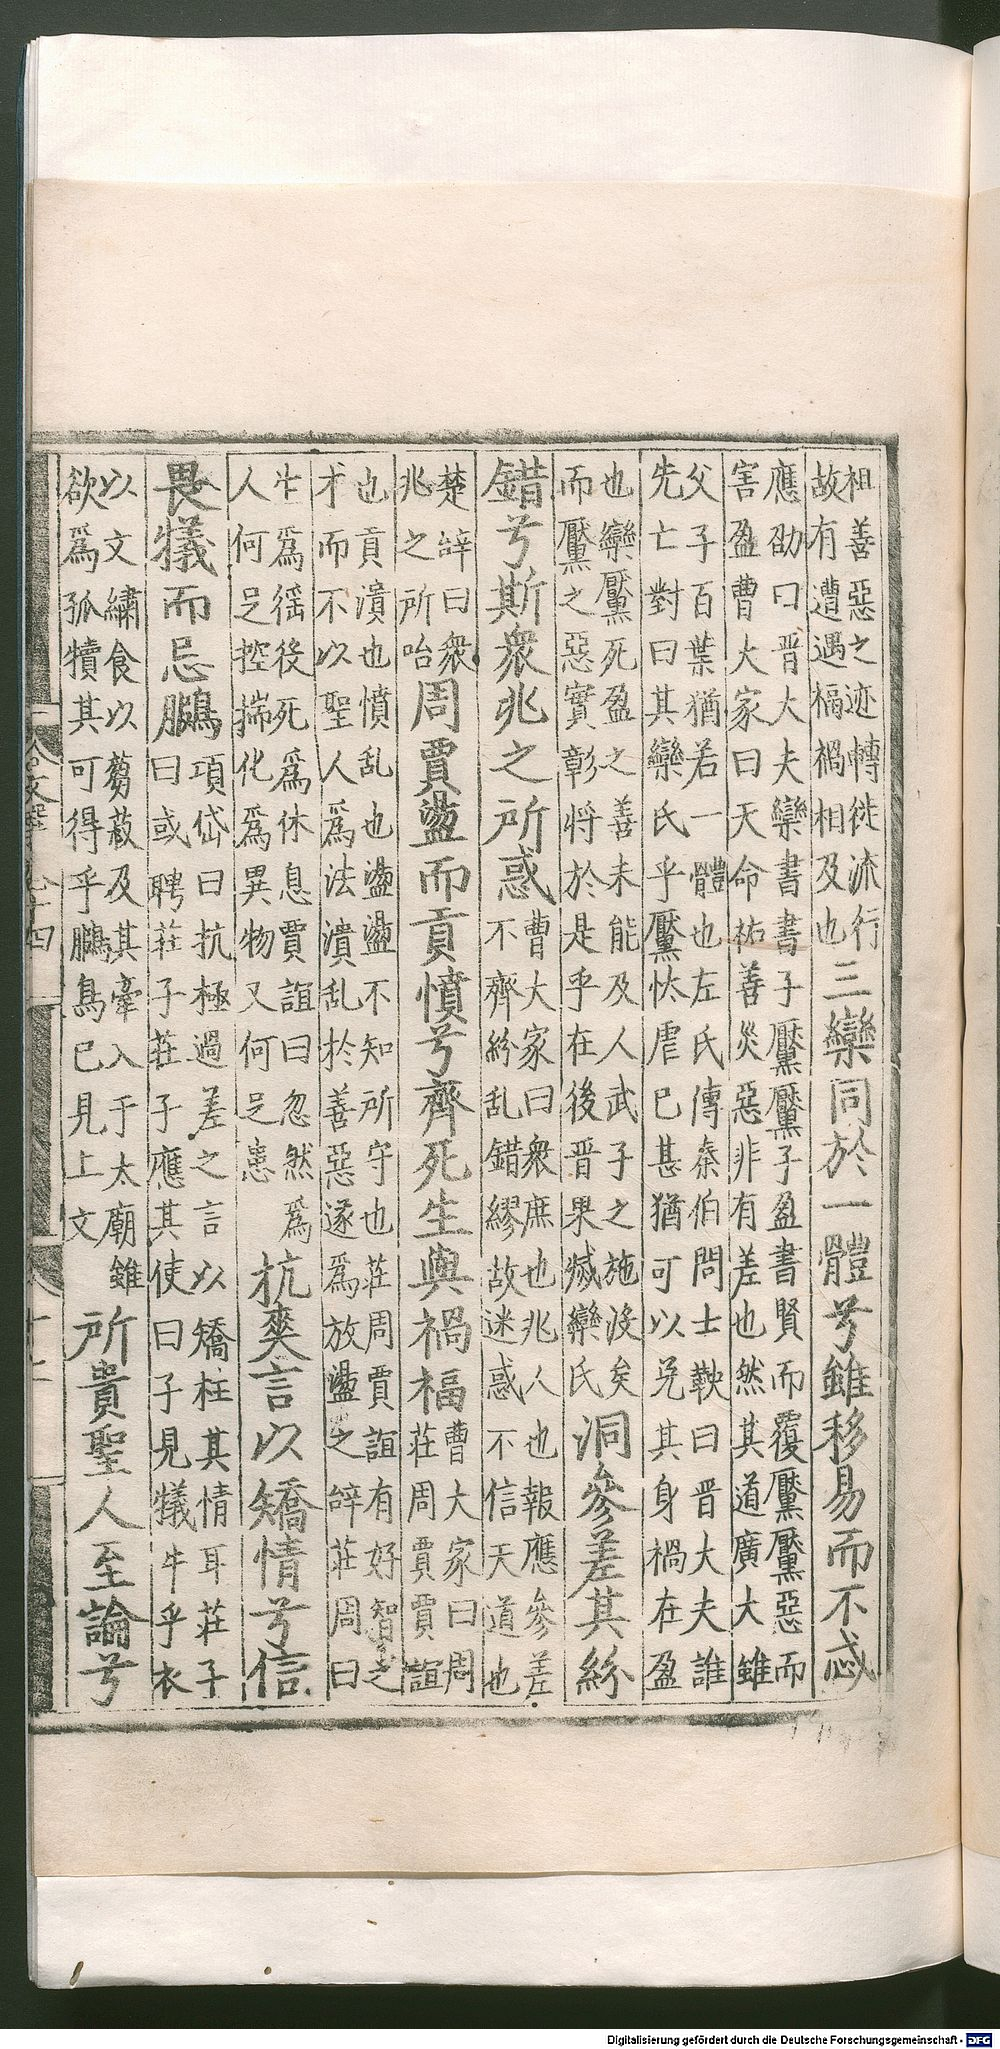 祖善惡之迹轉徙流行
故有遭遇福禍相及也
三欒同於一體兮雖移易而不忒
應劭曰晋大夫欒書書子黶黶子盈書賢而覆黶黶惡而
害盈曹大家曰天命祐善災惡非有差也然其道廣大雖
父子百葉猶若一體也左氏傳秦伯問士鞅曰晋大夫誰
先亡對曰其欒氏乎黶忲虐已甚猶可以免其身禍在盈
也欒黶死盈之善未能及人武子之施没矣
而黶之惡實彰將於是乎在後晋果滅欒氏
洞參差其紛
錯兮斯衆兆之所惑
曹大家曰衆庶也兆人也報應參差
不齊紛乱錯繆故迷惑不信天道也
楚辞曰衆
兆之所咍
周賈盪而貢憤兮齊死生與禍福
曹大家曰周
莊周賈賈誼
也貢潰也憤乱也盪盪不知所守也莊周賈誼有好智之
才而不以聖人爲法潰乱於善惡遂爲放盪之辞莊周曰
生爲徭役死爲休息賈誼曰忽然爲
人何足控揣化爲異物又何足患
抗爽言以矯情兮信
畏犧而忌鵩
項岱曰抗極過差之言以矯枉其情耳莊子
曰或聘莊子莊子應其使曰子見犧牛乎衣
以文繡食以蒭菽及其牽入于太廟雖
欲爲孤犢其可得乎鵩鳥已見上文
所貴聖人至論兮
Digitalisierung gefördert durch die Deutsche Forschungsgemeinschaft - DFG